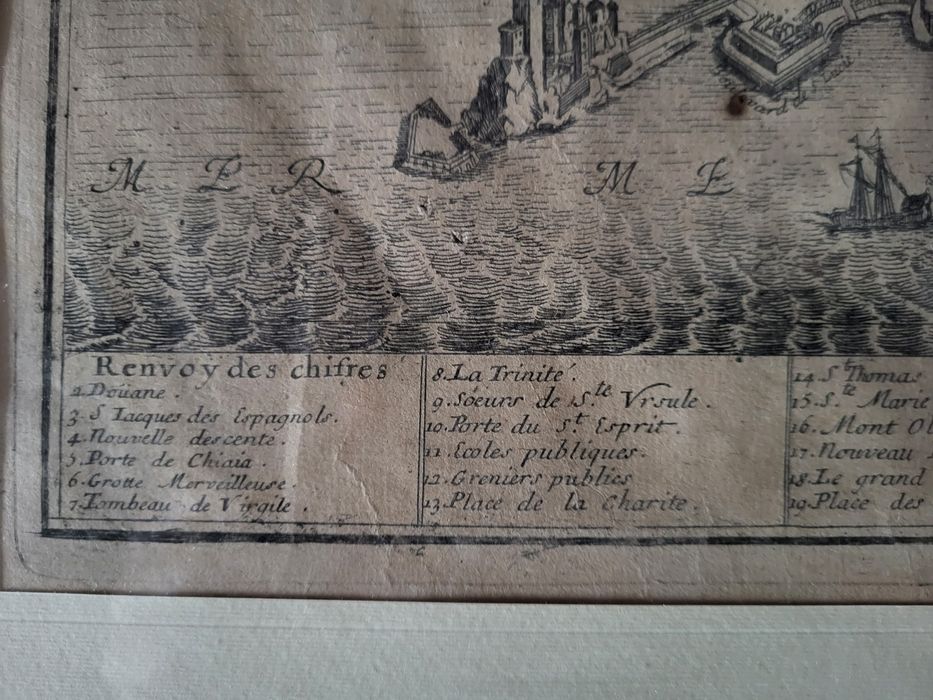 MER ME
Renvoy des chifres
2. Doüane.
3. S Iacques des Espagnols.
4. Nouvelle descente.
5. Porte de Chiaia.
6. Grotte Merveilleuse.
7. Tombeau de Virgile.
8. La Trinité.
9. Soeurs de Ste Vrsule.
10. Porte du St Esprit.
11. Ecoles publiques.
12. Greniers publics
13. Place de la Charite.
14. St Thomas
15. Ste Marie
16. Mont Ol
17. Nouveau
18. Le grand
19. Place des